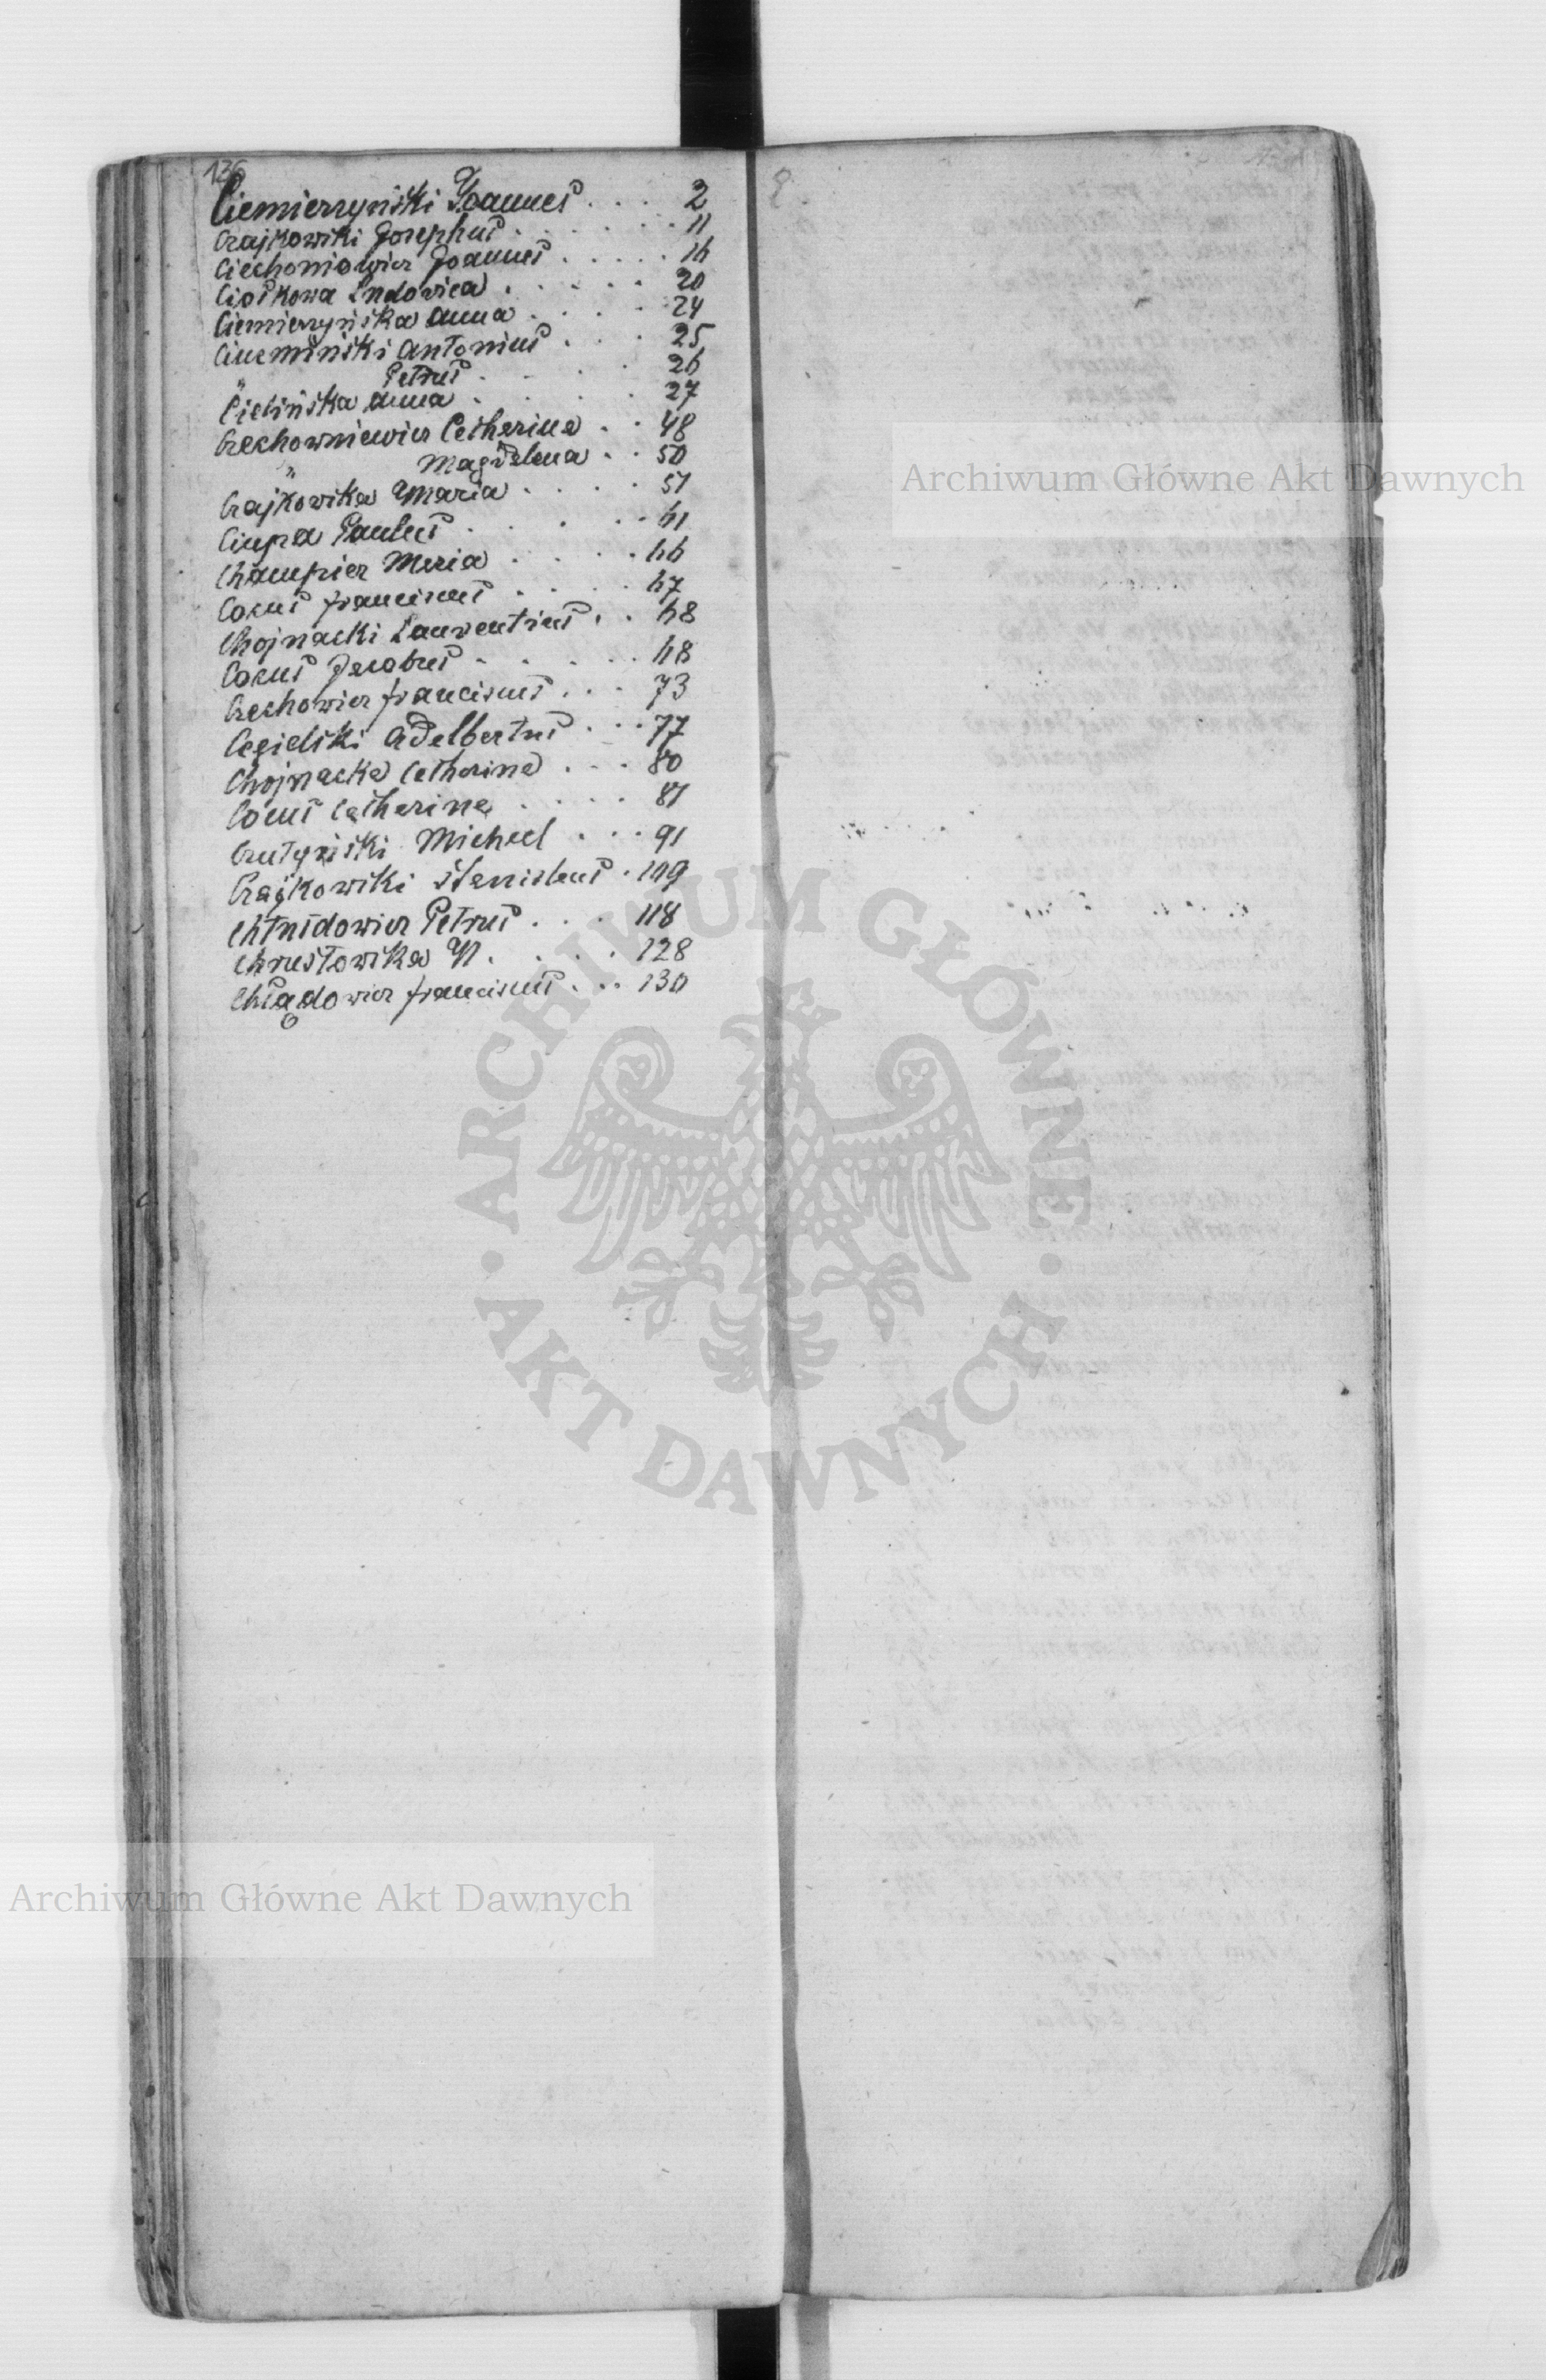 136
Ciemierzyński Joannes . . . 2
Czajkowski Josephus . . . . . . 11
Ciechoniowicz Joannes . . . . . 16
Ciośkowa Ludovica . . . . . 20
Ciemierzyńska Anna . . . . 24
Antonius . . . 25
" Petrus . . . . 26
Cielińska Anna . . . . 27
Czechowniewicz Catherina . . 48
" Magdalena . . 50
Czajkowska Maria . . . . 51
Ciupza Paulus . . . . . . 61
Champier Maria . . . . . 66
Cocus Franciscus . . . . 67
Chojnacki Laurentius . . 68
Cocus Jacobus . . . . . . 68
Czechowicz Franciscus . . . 73
Cegielski Adelbertus . . . 77
Chojnacka Catherina . . . 80
Cocus Catherina . . . . 81
Michael . . . 91
Czajkowski Stanislaus . 109
Petrus . . . 118
Chrustowska N . . . . 128
Franciscus . . . 130
Archiwum Główne Akt Dawnych
ARCHIWUM GŁÓWNE · AKT DAWNYCH ·
Archiwum Główne Akt Dawnych